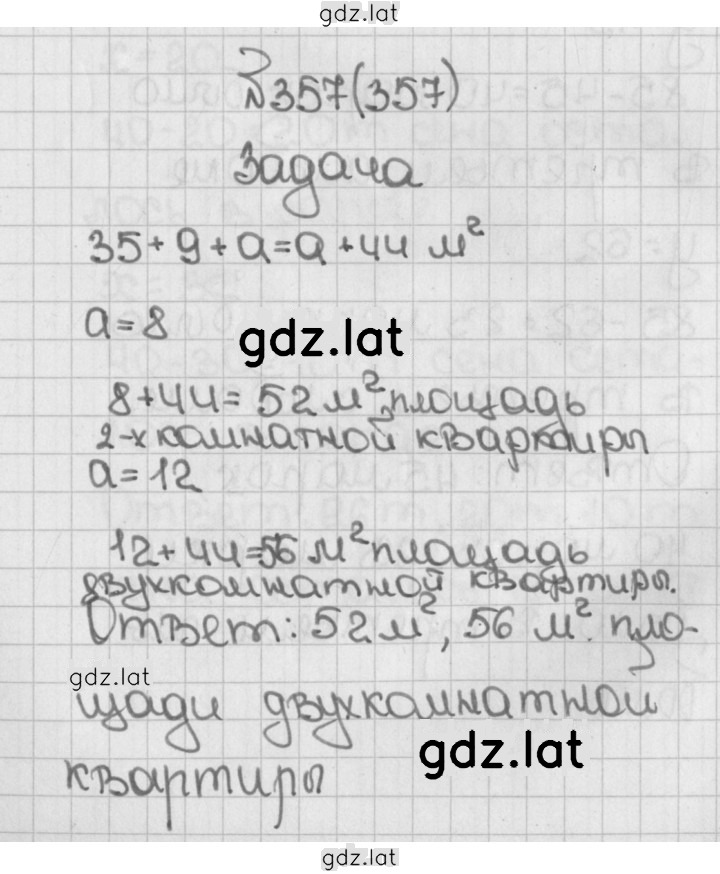 gdz.lat
№357(357)
Задача
35+9+a=a+44 м²
a=8
gdz.lat
8+44= 52 м² площадь
2-х комнатной квартиры
a=12
12+44=56 м² площадь
двухкомнатной квартиры.
Ответ: 52 м², 56 м². пло-
gdz.lat
щади двухкомнатной
gdz.lat
квартиры
gdz.lat